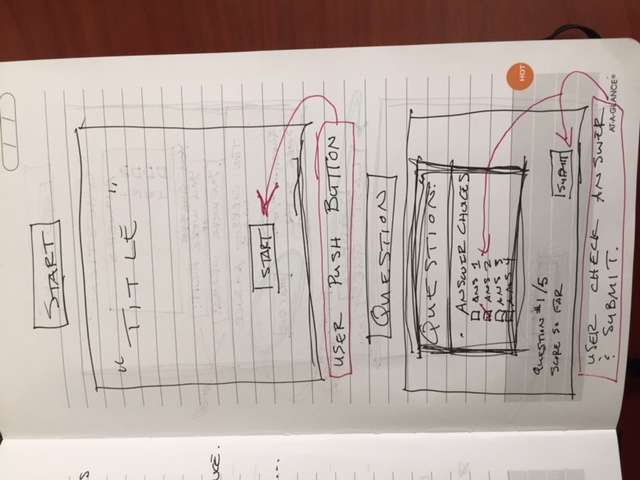 START
" TITLE "
START
USER PUSH BUTTON
QUESTION
QUESTION:
· ANSWER CHOICES
ANS 1
ANS 2
ANS 3
ANS 4
QUESTION # 1/5
SCORE SO FAR
SUBMIT
USER CHECK ANSWER
& SUBMIT.
HOT
AT-A-GLANCE®